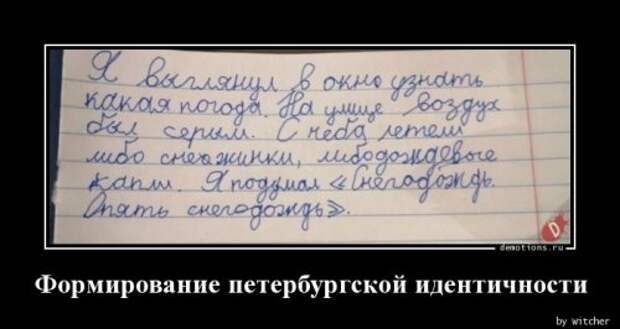 Я выглянул в окно узнать
какая погода. На улице воздух
был серым. С неба летели
либо снежинки, либо дождевые
капли. Я подумал «Снегодождь.
Опять снегодождь».
D
demotions.ru
Формирование петербургской идентичности
by witcher